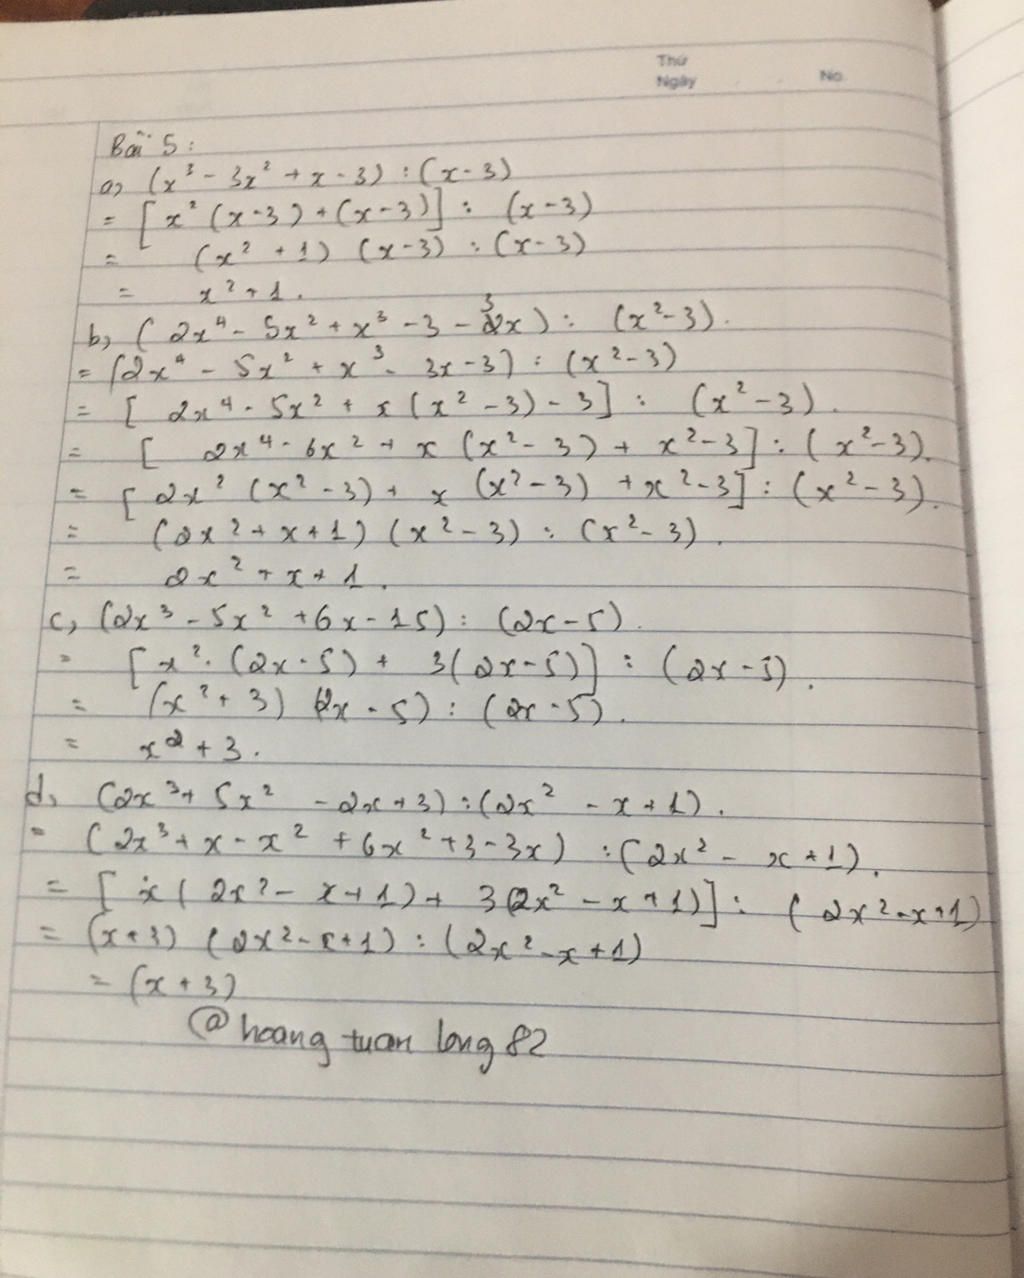 Thứ
Ngày
No.
Bài 5:
a, (x³ - 3x² + x - 3) : (x - 3)
= [x² (x - 3) + (x - 3)] : (x - 3)
= (x² + 1) (x - 3) : (x - 3)
= x² + 1.
b, (2x⁴ - 5x² + x³ - 3 - 3x) : (x² - 3).
= (2x⁴ - 5x² + x³ - 3x - 3) : (x² - 3)
= [2x⁴ - 5x² + x (x² - 3) - 3] : (x² - 3).
= [2x⁴ - 6x² + x (x² - 3) + x² - 3] : (x² - 3).
= [2x² (x² - 3) + x (x² - 3) + x² - 3] : (x² - 3).
= (2x² + x + 1) (x² - 3) : (x² - 3).
= 2x² + x + 1.
c, (2x³ - 5x² + 6x - 15) : (2x - 5).
= [x². (2x - 5) + 3(2x - 5)] : (2x - 5).
= (x² + 3) (2x - 5) : (2x - 5).
= x² + 3.
d, (2x³ + 5x² - 2x + 3) : (2x² - x + 1).
= (2x³ + x - x² + 6x² + 3 - 3x) : (2x² - x + 1).
= [x (2x² - x + 1) + 3(2x² - x + 1)] : (2x² - x + 1)
= (x + 3) (2x² - x + 1) : (2x² - x + 1)
= (x + 3)
@hoang tuan long 82